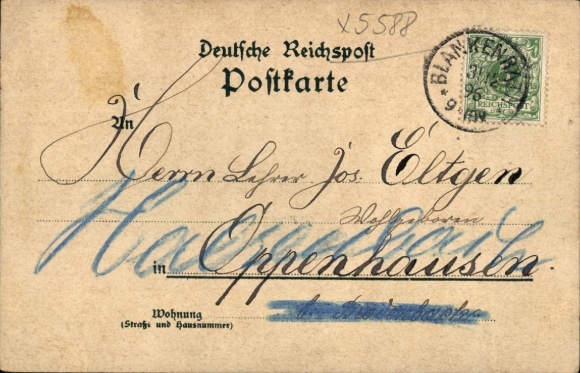 x5588
Deutsche Reichspost
Postkarte
BLANKENR
96
9
REICHSPOST
An
Herrn Lehrer Jos. Eltgen
Wohlgeboren
in Oppenhausen.
Wohnung
(Straße und Hausnummer)